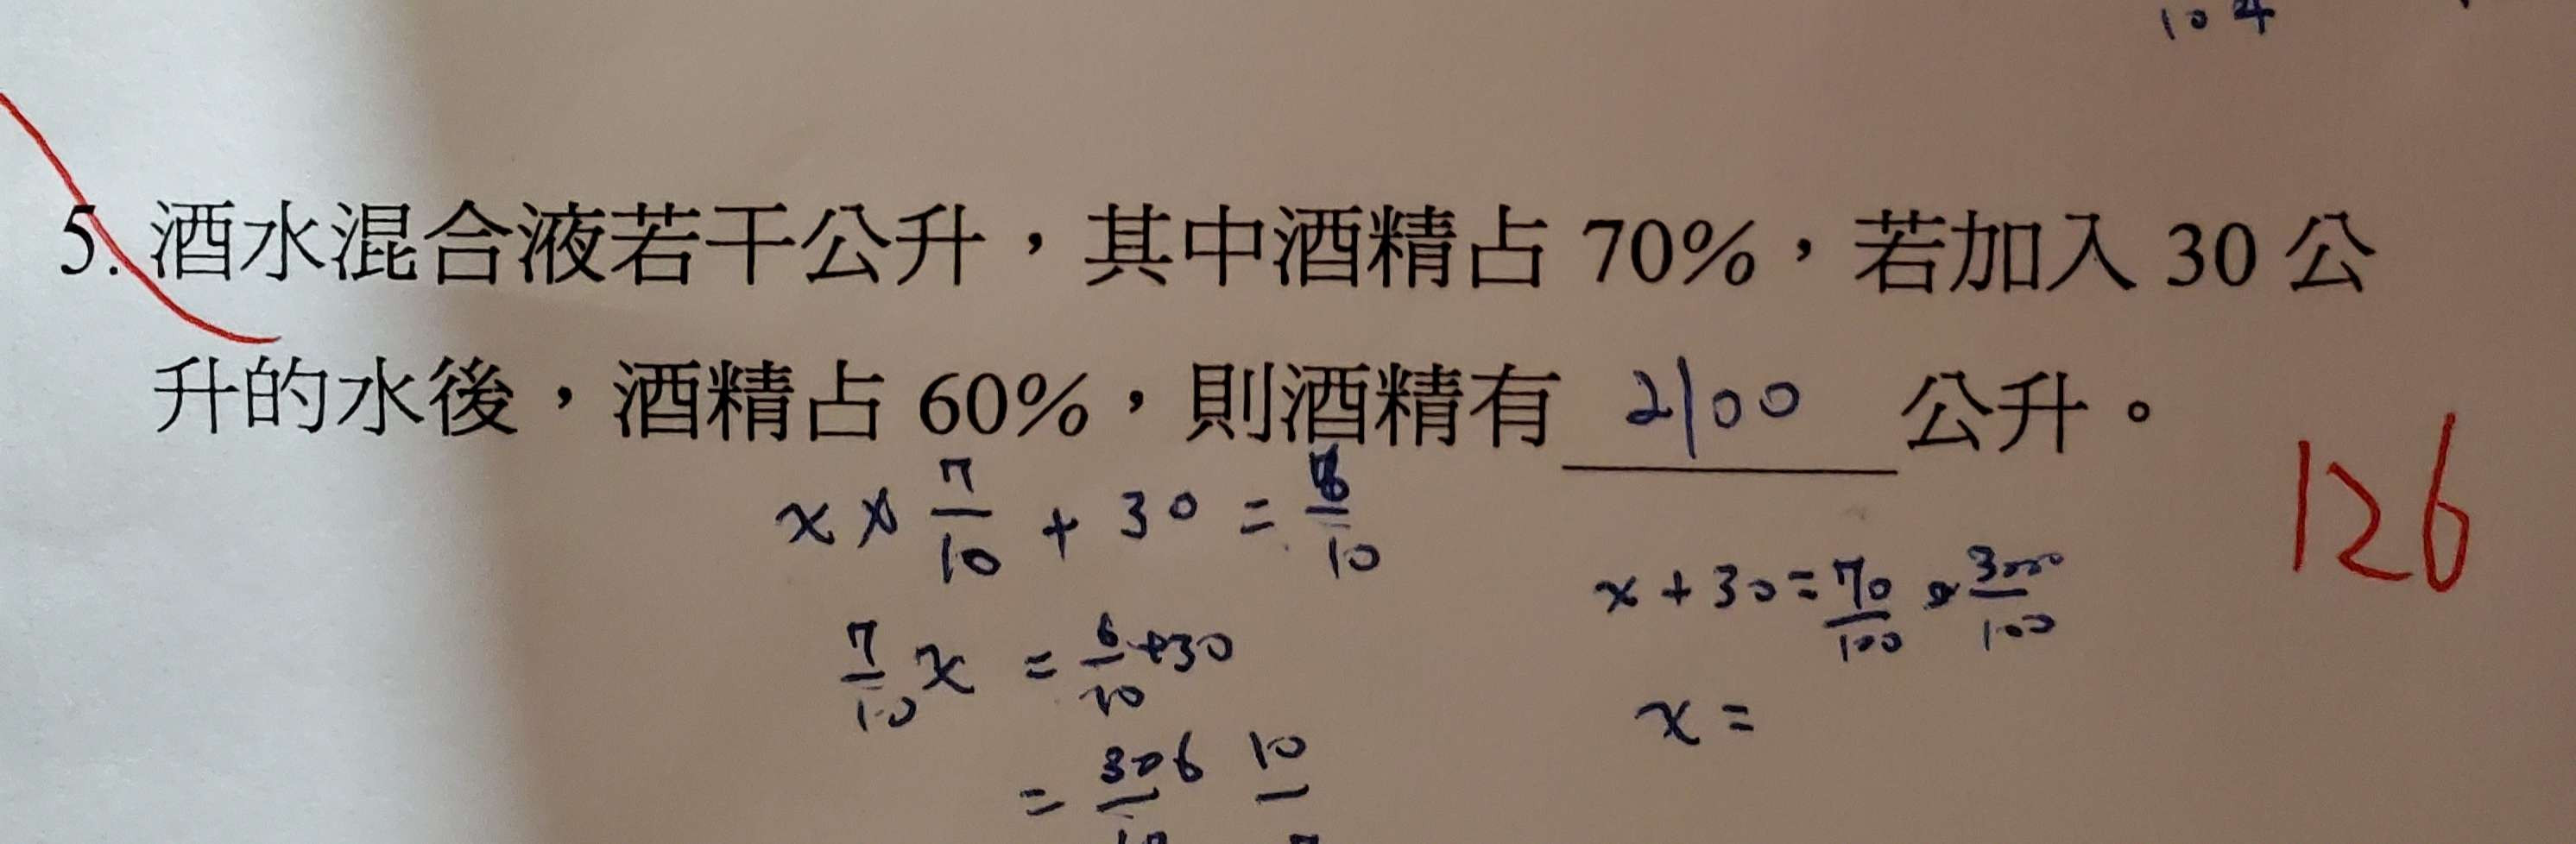 104
5. 酒水混合液若干公升，其中酒精占 70%，若加入 30 公
升的水後，酒精占 60%，則酒精有 2100 公升。
126
x × 7/10 + 30 = 6/10
x + 30 = 70/100 3000/100
7/10 x = 6/10 + 30
x =
= 306/10 10/7